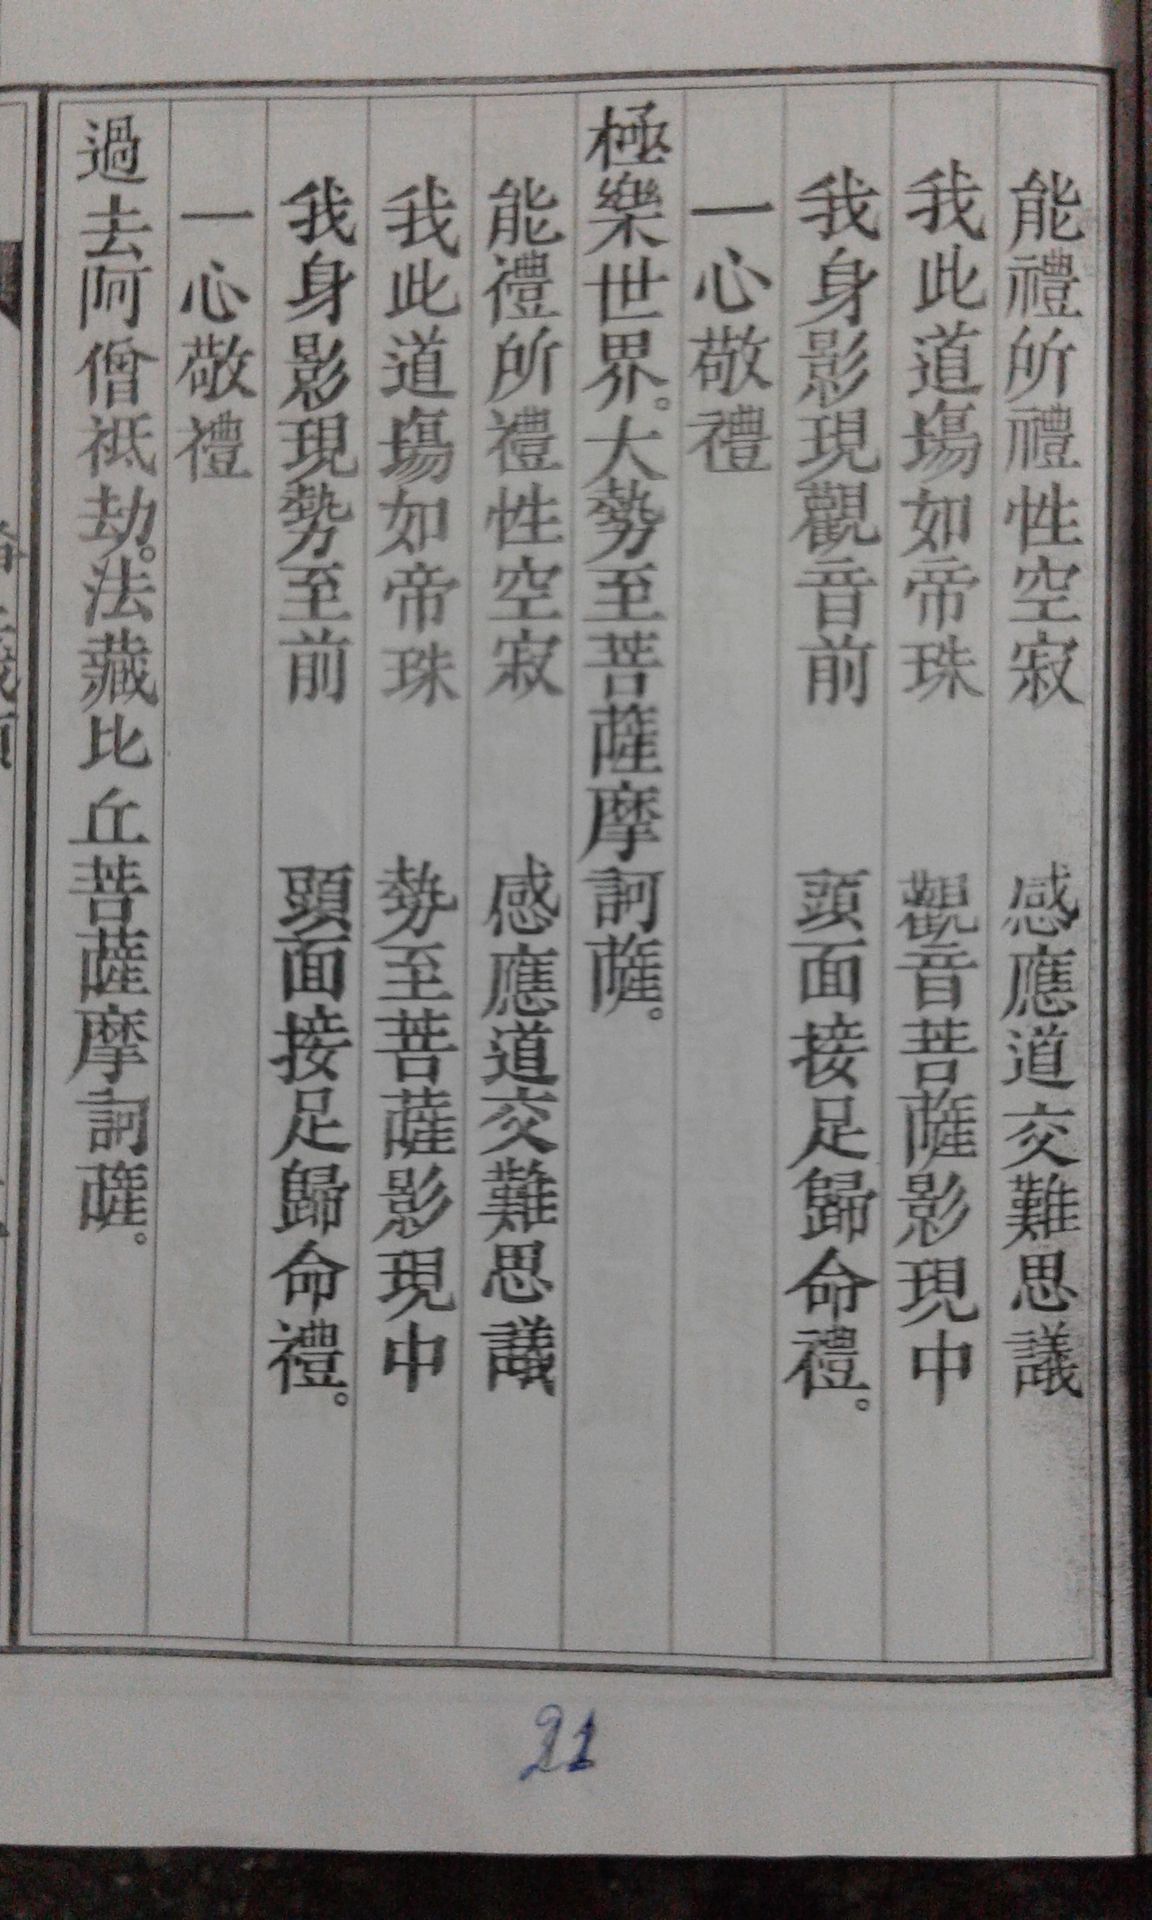 能禮所禮性空寂　感應道交難思議
我此道塲如帝珠　觀音菩薩影現中
我身影現觀音前　頭面接足歸命禮。
一心敬禮
極樂世界。大勢至菩薩摩訶薩。
能禮所禮性空寂　感應道交難思議
我此道塲如帝珠　勢至菩薩影現中
我身影現勢至前　頭面接足歸命禮。
一心敬禮
過去阿僧祇劫。法藏比丘菩薩摩訶薩。
21